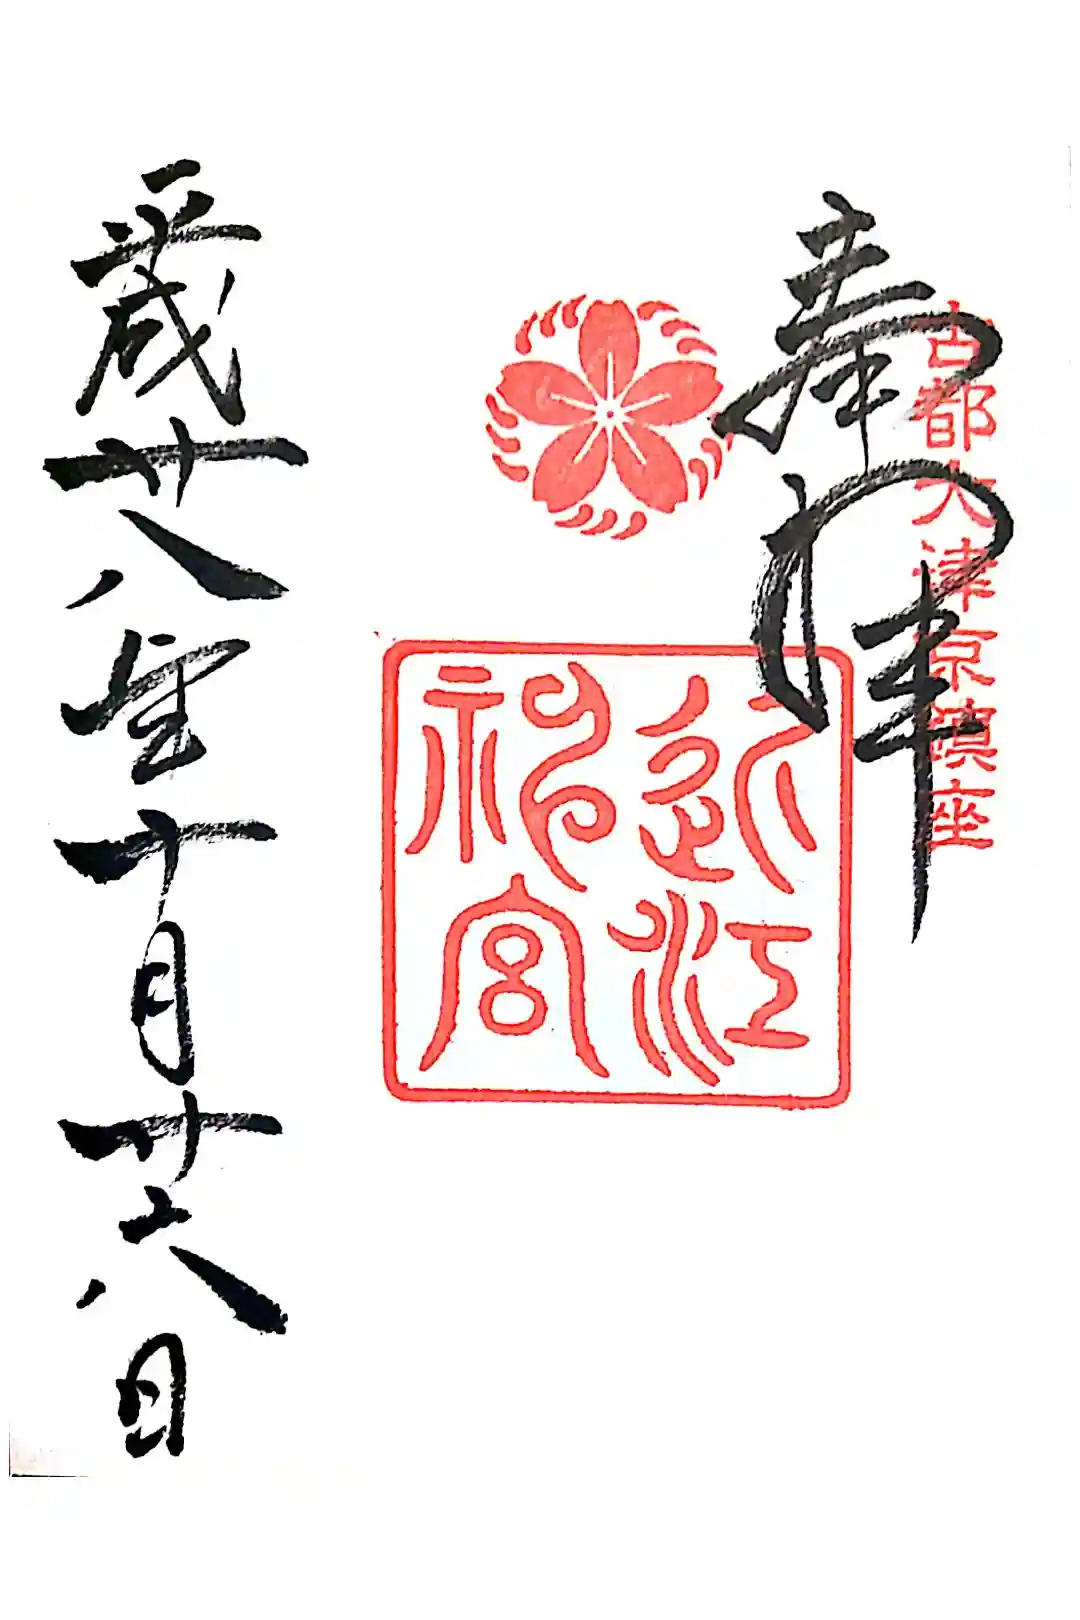 古都大津京鎮座
奉拝
近江
神宮
平成廿八年十月廿六日